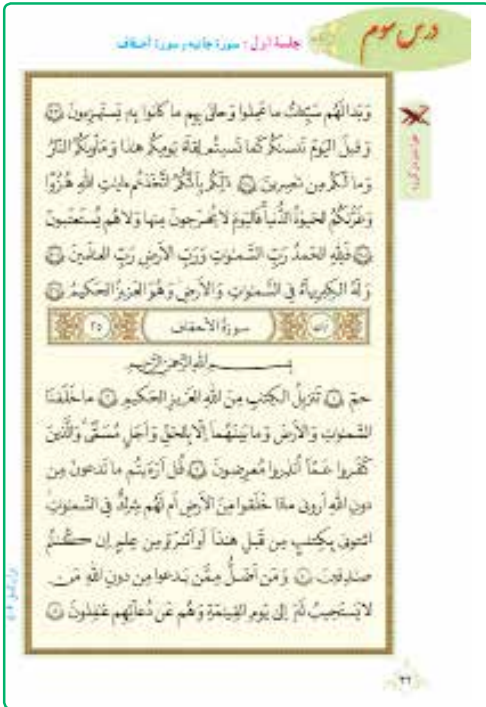 درس سوم
جلسهٔ اول : سورهٔ جاثیه و سورهٔ احقاف
وَبَدا لَهُم سَيِّئاتُ ما عَمِلوا وَحاقَ بِهِم ما كانوا بِهِ يَستَهزِءونَ ﴿٣٣﴾
وَقيلَ اليَومَ نَنسىٰكُم كَما نَسيتُم لِقاءَ يَومِكُم هٰذا وَمَأوىٰكُمُ النّارُ
وَما لَكُم مِن ناصِرينَ ﴿٣٤﴾ ذٰلِكُم بِأَنَّكُمُ اتَّخَذتُم ءايٰتِ اللّٰهِ هُزُوًا
وَغَرَّتكُمُ الحَيوٰةُ الدُّنيا فَاليَومَ لا يُخرَجونَ مِنها وَلا هُم يُستَعتَبونَ
﴿٣٥﴾ فَلِلّٰهِ الحَمدُ رَبِّ السَّمٰوٰتِ وَرَبِّ الأَرضِ رَبِّ العٰلَمينَ ﴿٣٦﴾
وَلَهُ الكِبرِياءُ فِي السَّمٰوٰتِ وَالأَرضِ وَهُوَ العَزيزُ الحَكيمُ ﴿٣٧﴾
سورةُ الأحقاف ٣٥
بِسمِ اللّٰهِ الرَّحمٰنِ الرَّحيمِ
حمٓ ﴿١﴾ تَنزيلُ الكِتٰبِ مِنَ اللّٰهِ العَزيزِ الحَكيمِ ﴿٢﴾ ما خَلَقنَا
السَّمٰوٰتِ وَالأَرضَ وَما بَينَهُما إِلّا بِالحَقِّ وَأَجَلٍ مُسَمًّى وَالَّذينَ
كَفَروا عَمّا أُنذِروا مُعرِضونَ ﴿٣﴾ قُل أَرَءَيتُم ما تَدعونَ مِن
دونِ اللّٰهِ أَروني ماذا خَلَقوا مِنَ الأَرضِ أَم لَهُم شِركٌ فِي السَّمٰوٰتِ
ائتوني بِكِتٰبٍ مِن قَبلِ هٰذا أَو أَثٰرَةٍ مِن عِلمٍ إِن كُنتُم
صٰدِقينَ ﴿٤﴾ وَمَن أَضَلُّ مِمَّن يَدعو مِن دونِ اللّٰهِ مَن
لا يَستَجيبُ لَهُ إِلىٰ يَومِ القِيٰمَةِ وَهُم عَن دُعائِهِم غٰفِلونَ ﴿٥﴾